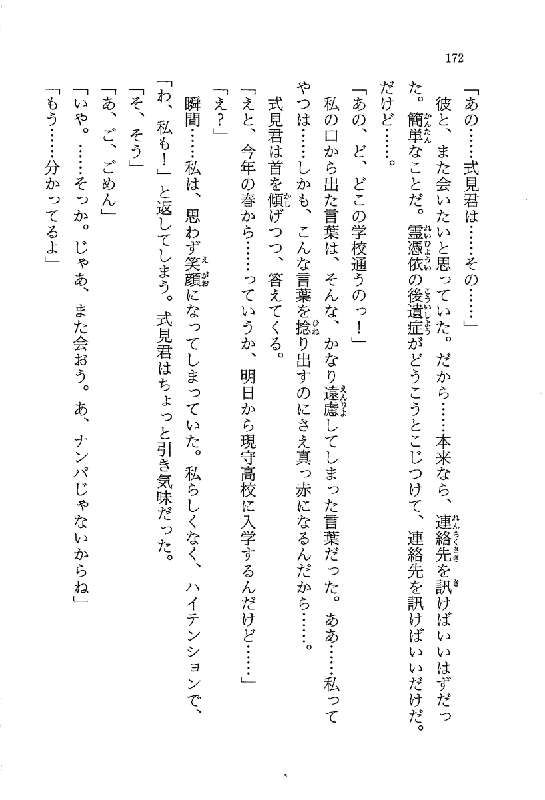 172
「あの……式見君は……その……」
彼と、また会いたいと思っていた。だから……本来なら、連絡先を訊けばいいはずだっ
た。簡単なことだ。霊憑依の後遺症がどうこうとこじつけて、連絡先を訊けばいいだけだ。
だけど……。
「あの、ど、どこの学校通うのっ！」
私の口から出た言葉は、そんな、かなり遠慮してしまった言葉だった。ああ……私って
やつは……しかも、こんな言葉を捻り出すのにさえ真っ赤になるんだから……。
式見君は首を傾げつつ、答えてくる。
「えと、今年の春から……っていうか、明日から現守高校に入学するんだけど……」
「え？」
瞬間……私は、思わず笑顔になってしまっていた。私らしくなく、ハイテンションで、
「わ、私も！」と返してしまう。式見君はちょっと引き気味だった。
「そ、そう」
「あ、ご、ごめん」
「いや。……そっか。じゃあ、また会おう。あ、ナンパじゃないからね」
「もう……分かってるよ」